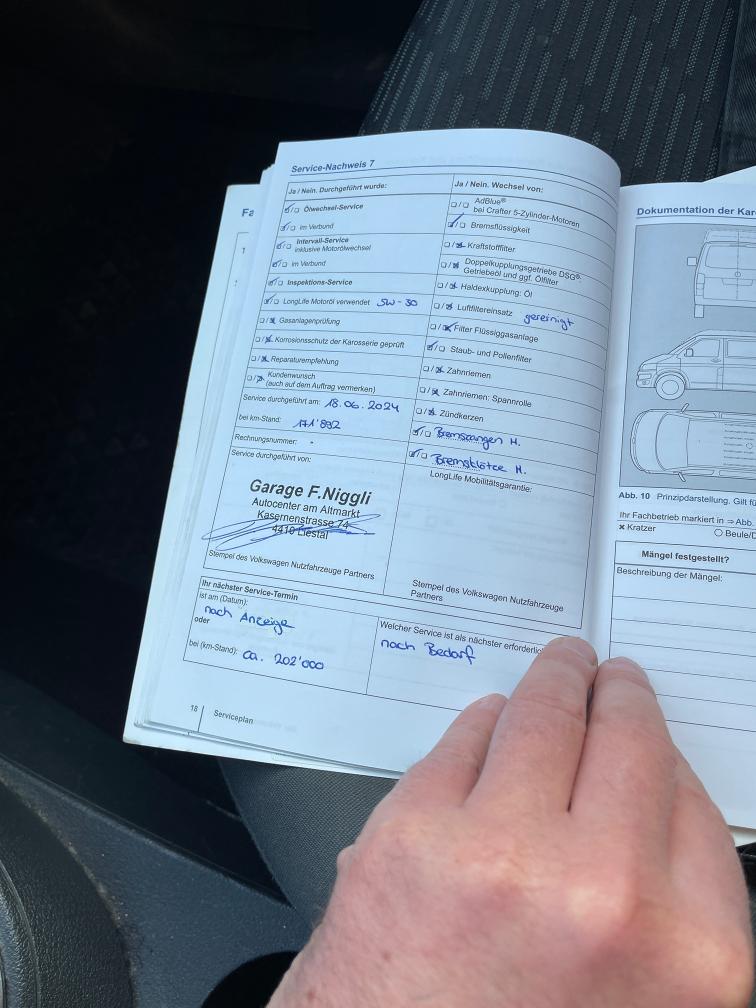 Service-Nachweis 7
Ja / Nein. Durchgeführt wurde:
Ölwechsel-Service
im Verbund
Intervall-Service
inklusive Motorölwechsel
im Verbund
Inspektions-Service
LongLife Motoröl verwendet 5W-30
Gasanlagenprüfung
Korrosionsschutz der Karosserie geprüft
Reparaturempfehlung
Kundenwunsch
(auch auf dem Auftrag vermerken)
Service durchgeführt am: 18.06.2024
bei km-Stand: 171'892
Rechnungsnummer: -
Service durchgeführt von:
Garage F.Niggli
Autocenter am Altmarkt
Kasernenstrasse 74
4410 Liestal
Stempel des Volkswagen Nutzfahrzeuge Partners
Ja / Nein. Wechsel von:
AdBlue®
bei Crafter 5-Zylinder-Motoren
Bremsflüssigkeit
Kraftstofffilter
Doppelkupplungsgetriebe DSG®:
Getriebeöl und ggf. Ölfilter
Haldexkupplung: Öl
Luftfiltereinsatz gereinigt
Filter Flüssiggasanlage
Staub- und Pollenfilter
Zahnriemen
Zahnriemen: Spannrolle
Zündkerzen
Bremszangen H.
Bremsklötze H.
LongLife Mobilitätsgarantie:
Stempel des Volkswagen Nutzfahrzeuge
Partners
Ihr nächster Service-Termin
ist am (Datum):
nach Anzeige
oder
bei (km-Stand): ca. 202'000
Welcher Service ist als nächster erforderlic
nach Bedarf
18
Serviceplan
Fa
1
Dokumentation der Kar
Abb. 10 Prinzipdarstellung. Gilt fü
Ihr Fachbetrieb markiert in ⇒ Abb.
× Kratzer
○ Beule/D
Mängel festgestellt?
Beschreibung der Mängel: